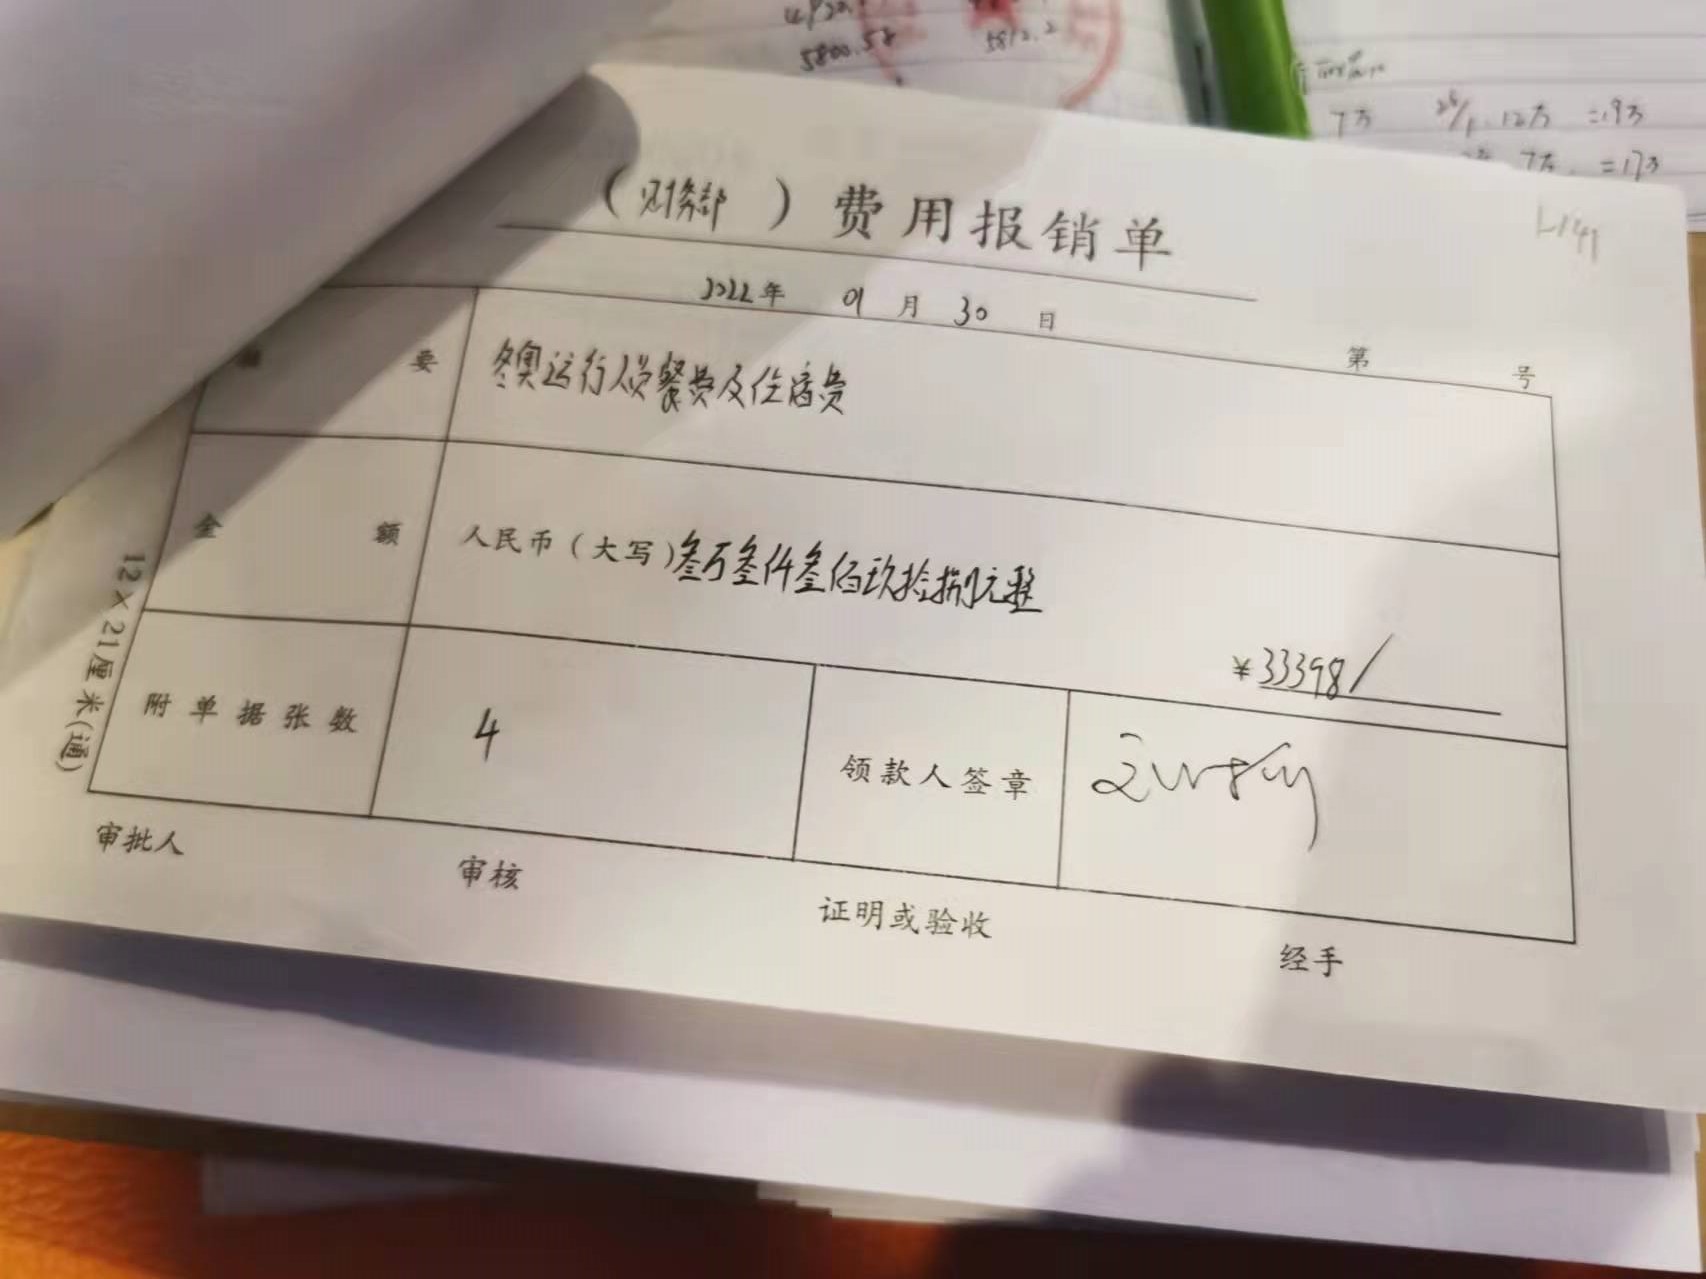 5800.58 5812.2
7万 26/1 12万 =19万
7万 =17万
L141
（财务部）费用报销单
2022年 01月 30日
第 号
摘要 冬奥运行人员餐费及住宿费
金额 人民币（大写）叁万叁仟叁佰玖拾捌元整
¥33398/
附单据张数 4 领款人签章
审批人 审核 证明或验收 经手
12×21厘米(通)